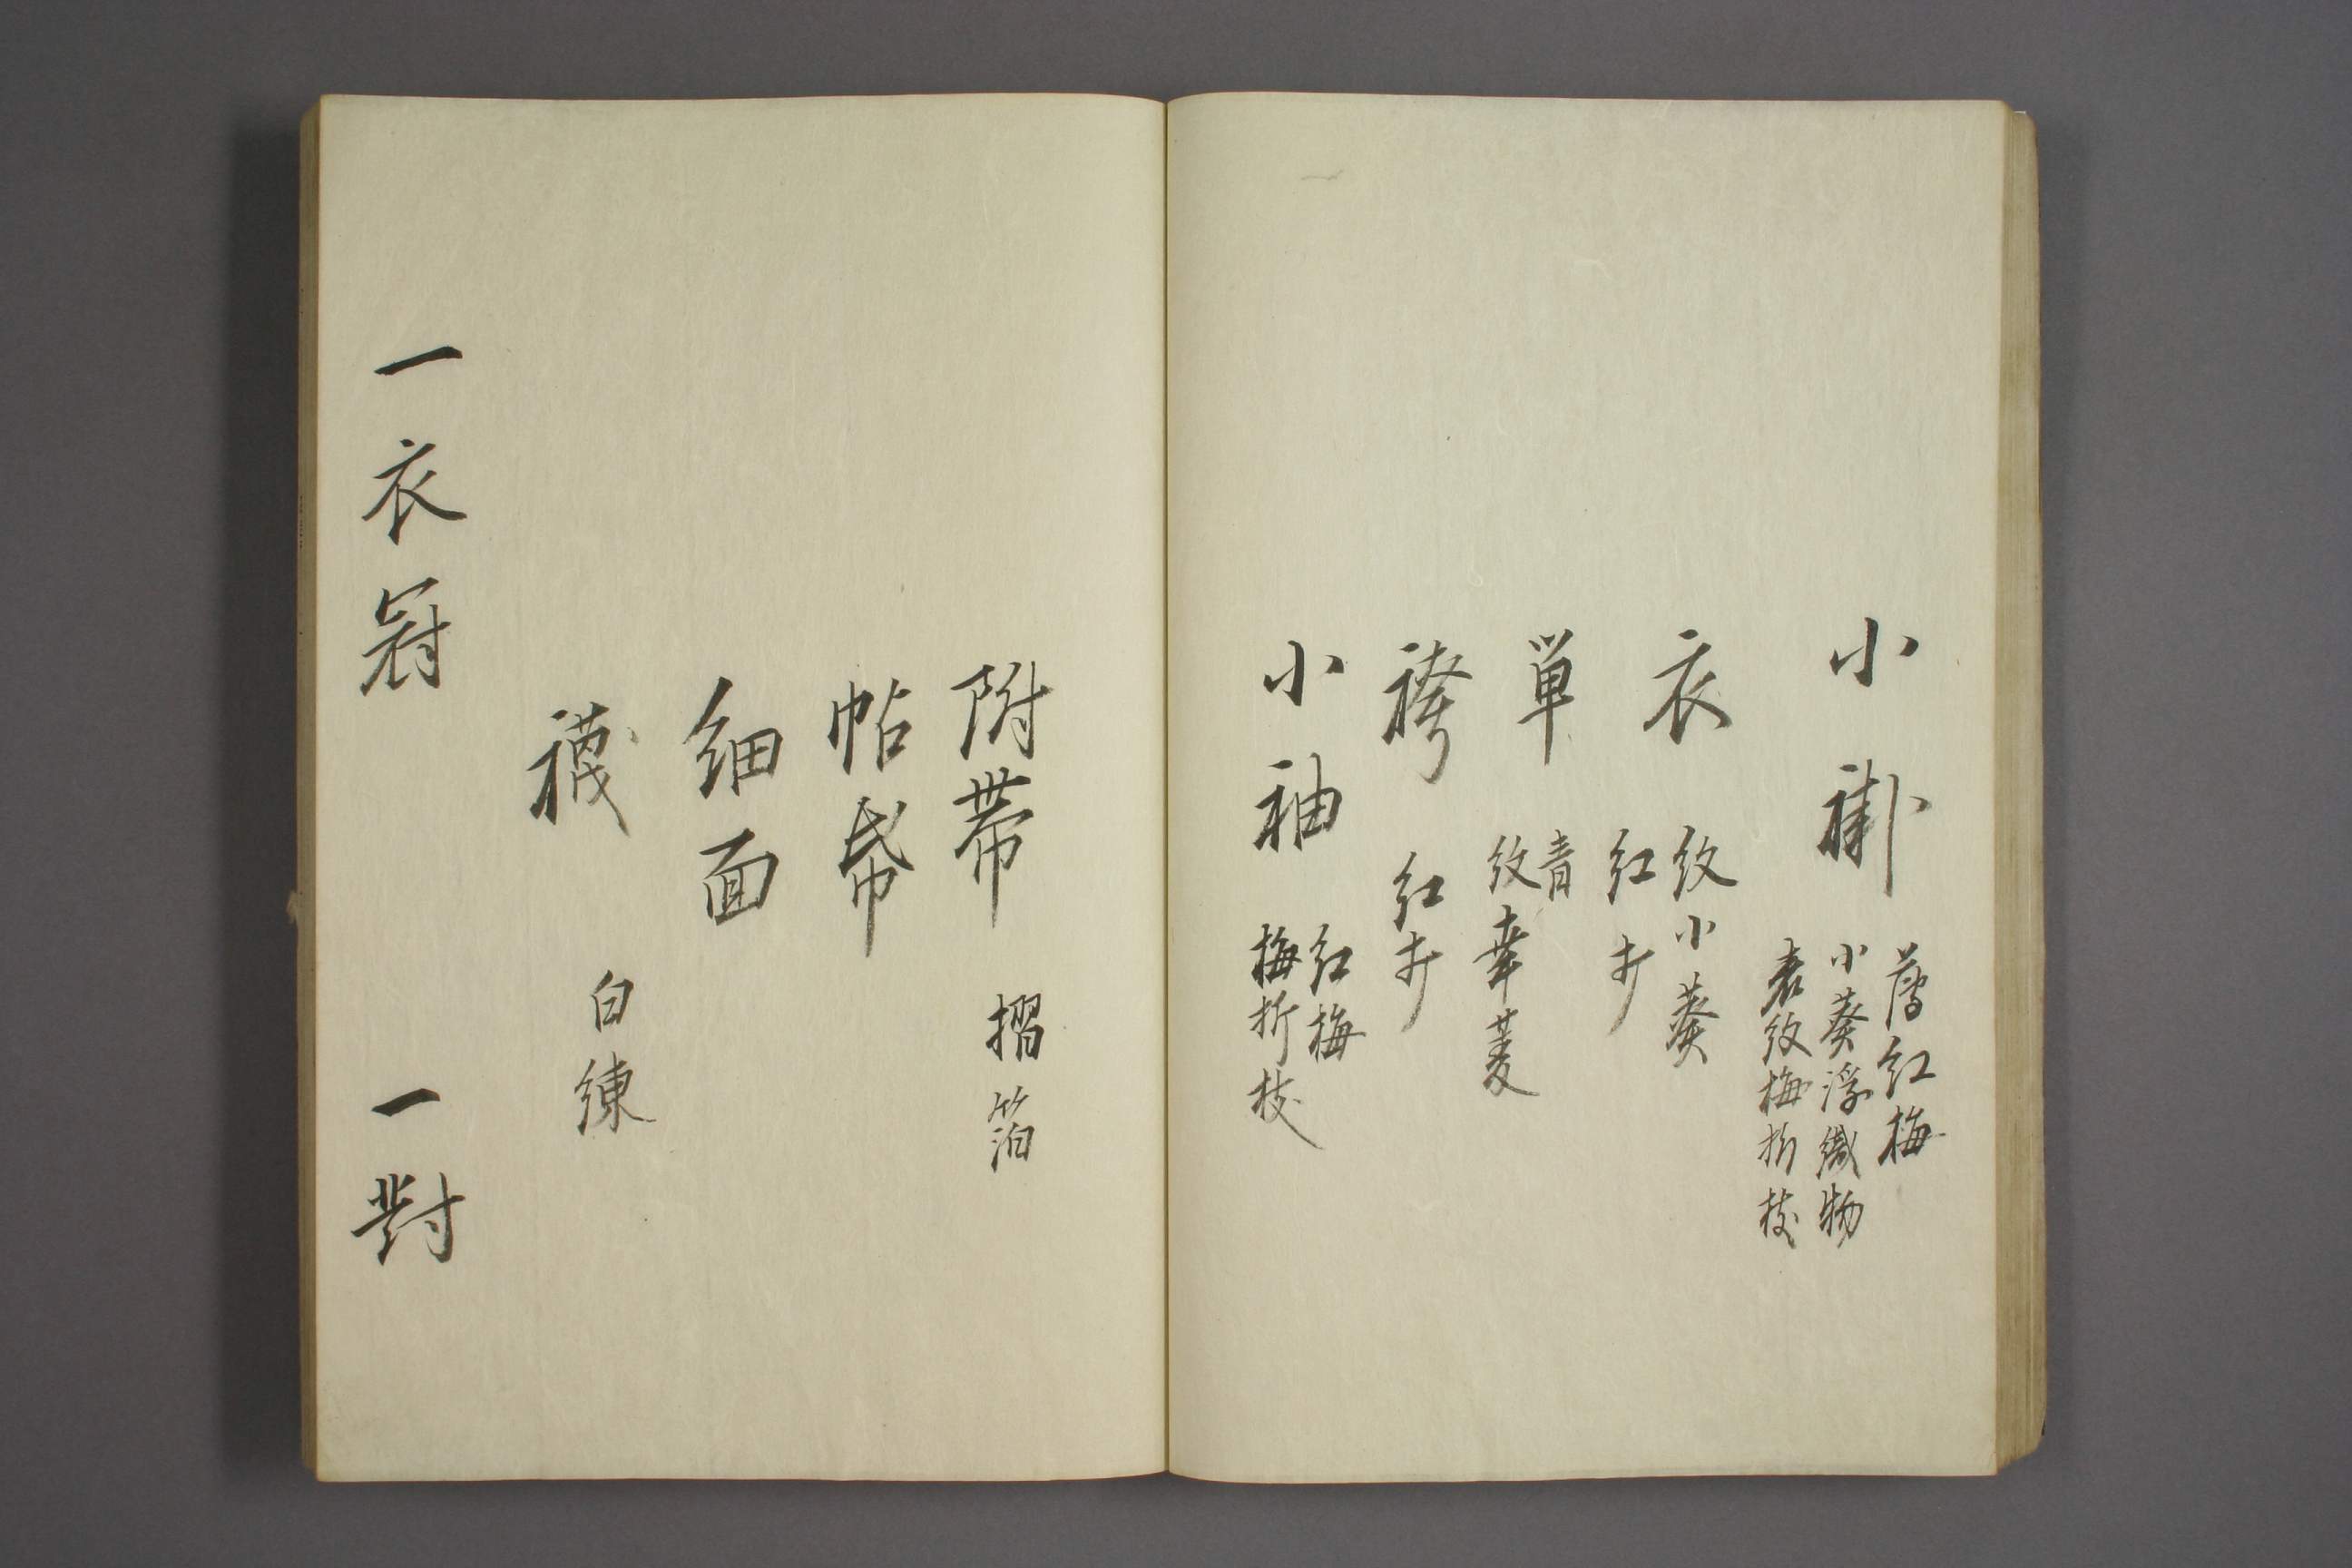 小褂
薄紅梅
小葵浮織物
表紋梅折枝
衣
紋小葵
紅打
単
青
紋幸菱
袴 紅打
小袖
紅梅
梅折枝
附帯 摺箔
帖帋
細面
襪 白練
一衣冠 一對